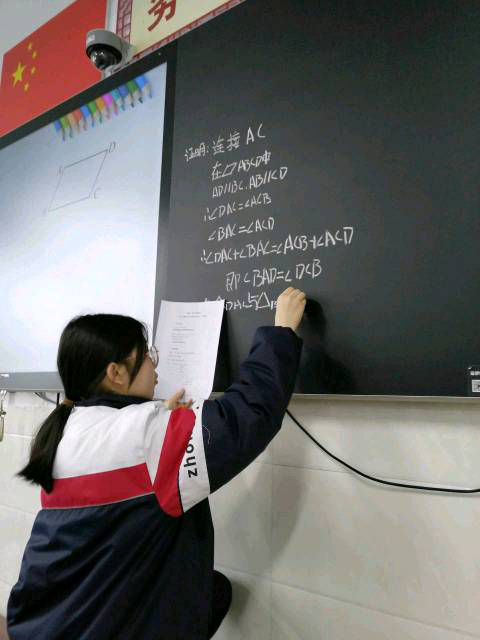 劳
D
C
证明：连接AC
在▱ABCD中
AD//BC，AB//CD
∴∠DAC=∠ACB
∠BAC=∠ACD
∴∠DAC+∠BAC=∠ACB+∠ACD
即∠BAD=∠DCB
与△
zho